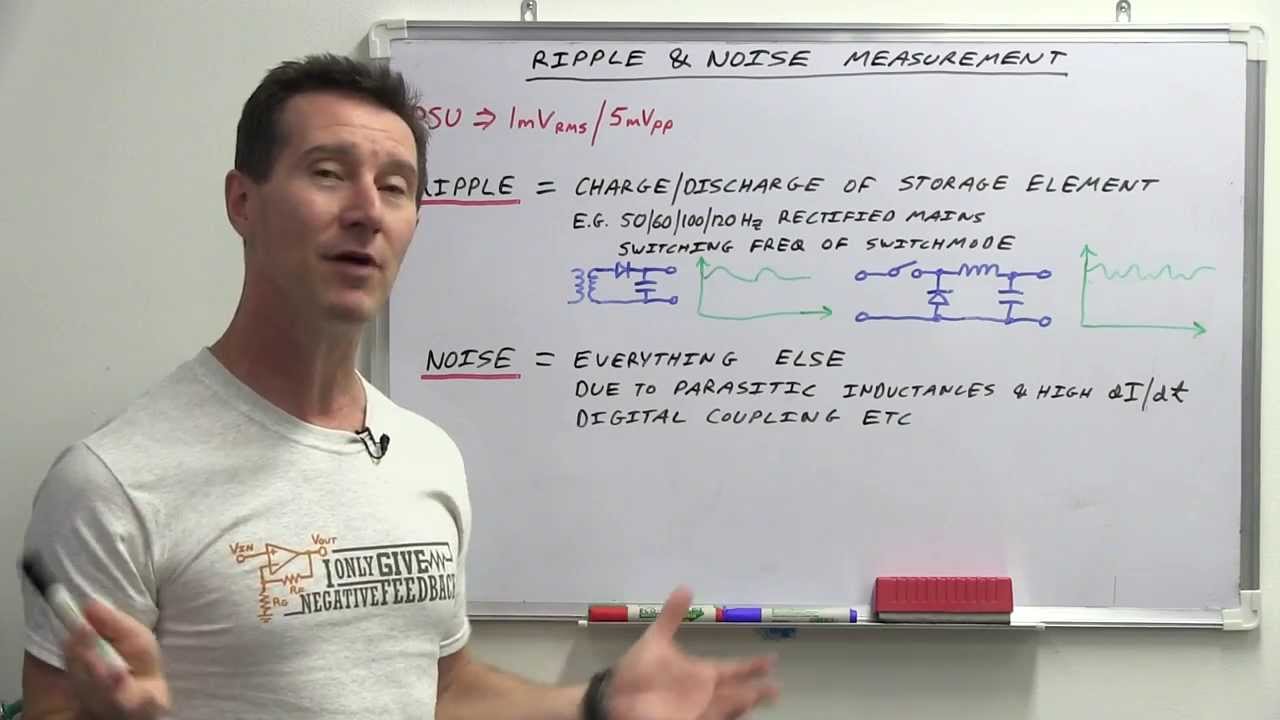 RIPPLE & NOISE MEASUREMENT
PSU ⇒ 1mVRMS/5mVPP
RIPPLE = CHARGE/DISCHARGE OF STORAGE ELEMENT
E.G. 50/60/100/120Hz RECTIFIED MAINS
SWITCHING FREQ OF SWITCHMODE
NOISE = EVERYTHING ELSE
DUE TO PARASITIC INDUCTANCES & HIGH dI/dt
DIGITAL COUPLING ETC
VIN
VOUT
RF
RG
I ONLY GIVE
NEGATIVE FEEDBACK